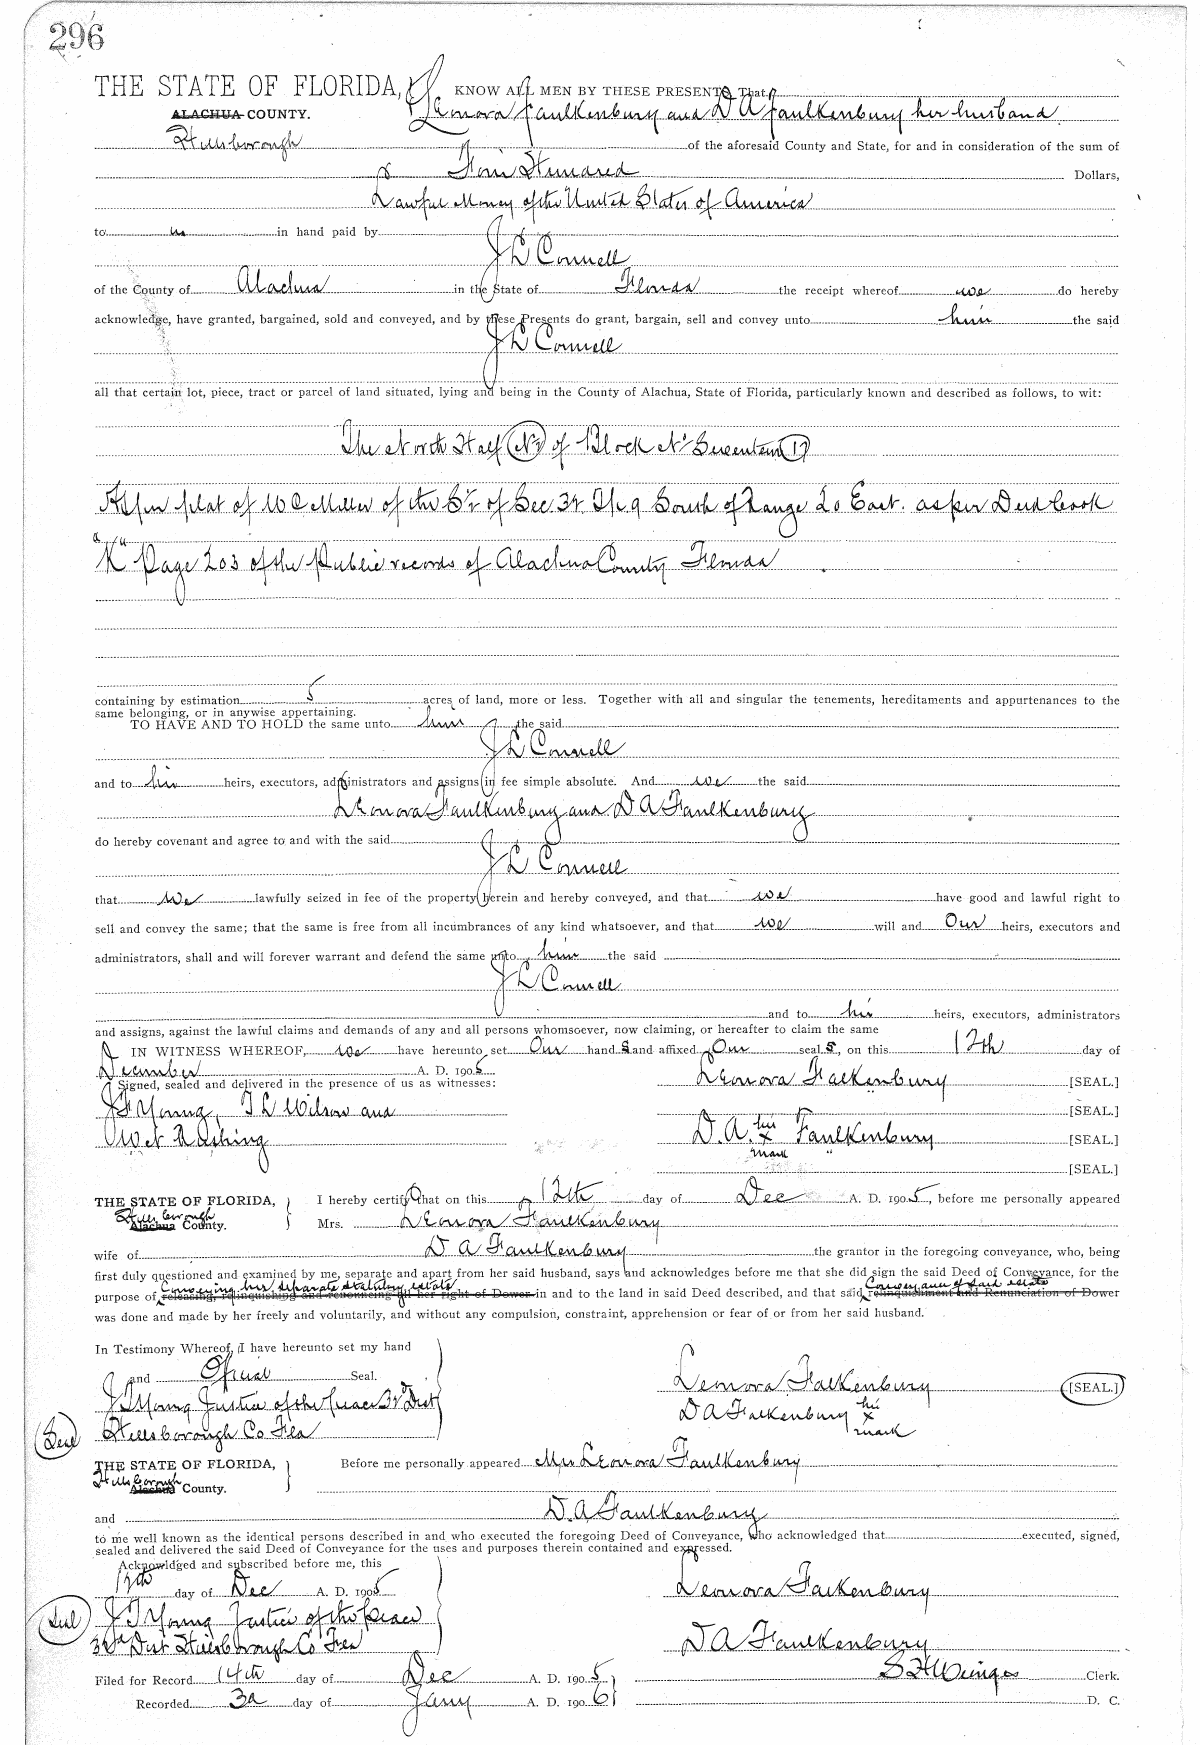 296
THE STATE OF FLORIDA, KNOW ALL MEN BY THESE PRESENTS, That
ALACHUA COUNTY. Leonora Faulkenbury and D A Faulkenbury her husband
Hillsborough of the aforesaid County and State, for and in consideration of the sum of
Four Hundred Dollars,
Lawful Money of the United States of America
to us in hand paid by
J L Connell
of the County of Alachua in the State of Florida the receipt whereof we do hereby
acknowledge, have granted, bargained, sold and conveyed, and by these Presents do grant, bargain, sell and convey unto him the said
J L Connell
all that certain lot, piece, tract or parcel of land situated, lying and being in the County of Alachua, State of Florida, particularly known and described as follows, to wit:
The North Half (N½) of Block No Seventeen (17)
As per plat of W C Miller of the S½ of Sec 32 Tp. 9 South of Range 20 East. as per Deed book
"K" Page 203 of the Public records of Alachua County Florida
containing by estimation 5 acres of land, more or less. Together with all and singular the tenements, hereditaments and appurtenances to the
same belonging, or in anywise appertaining.
TO HAVE AND TO HOLD the same unto him the said
J L Connell
and to his heirs, executors, administrators and assigns in fee simple absolute. And we the said
Leonora Faulkenbury and D A Faulkenbury
do hereby covenant and agree to and with the said
J L Connell
that we lawfully seized in fee of the property herein and hereby conveyed, and that we have good and lawful right to
sell and convey the same; that the same is free from all incumbrances of any kind whatsoever, and that we will and Our heirs, executors and
administrators, shall and will forever warrant and defend the same unto him the said
J L Connell
and to his heirs, executors, administrators
and assigns, against the lawful claims and demands of any and all persons whomsoever, now claiming, or hereafter to claim the same
IN WITNESS WHEREOF, we have hereunto set Our hand s and affixed Our seal s, on this 12th day of
December A. D. 1905
Signed, sealed and delivered in the presence of us as witnesses: Leonora Falkenbury [SEAL.]
J T Young, T L Wilson and [SEAL.]
D. A. his x mark Faulkenbury [SEAL.]
[SEAL.]
THE STATE OF FLORIDA, I hereby certify that on this 12th day of Dec A. D. 1905, before me personally appeared
Hillsborough Alachua County. Mrs. Leonora Faulkenbury
wife of D A Faulkenbury the grantor in the foregoing conveyance, who, being
first duly questioned and examined by me, separate and apart from her said husband, says and acknowledges before me that she did sign the said Deed of Conveyance, for the
Conveying her separate statutory estate Conveyance of said estate
purpose of releasing, relinquishing and renouncing all her right of Dower in and to the land in said Deed described, and that said relinquishment and Renunciation of Dower
was done and made by her freely and voluntarily, and without any compulsion, constraint, apprehension or fear of or from her said husband.
In Testimony Whereof, I have hereunto set my hand
and Oficial Seal. Leonora Falkenbury [SEAL.]
J T Young Justice of the peace 3rd Dist D A Falkenbury his x mark
Seal Hillsborough Co Fla
THE STATE OF FLORIDA, Before me personally appeared Mrs Leonora Faulkenbury
Hillsborough Alachua County.
and D. A Faulkenbury
to me well known as the identical persons described in and who executed the foregoing Deed of Conveyance, who acknowledged that executed, signed,
sealed and delivered the said Deed of Conveyance for the uses and purposes therein contained and expressed.
Acknowldged and subscribed before me, this
12th day of Dec A. D. 1905 Leonora Falkenbury
Seal J T Young Justice of the peace
3rd Dist Hillsborough Co Fla D A Faulkenbury
Filed for Record 14th day of Dec A. D. 1905 S H Wienges Clerk.
Recorded 3d day of Jany A. D. 1906 D. C.